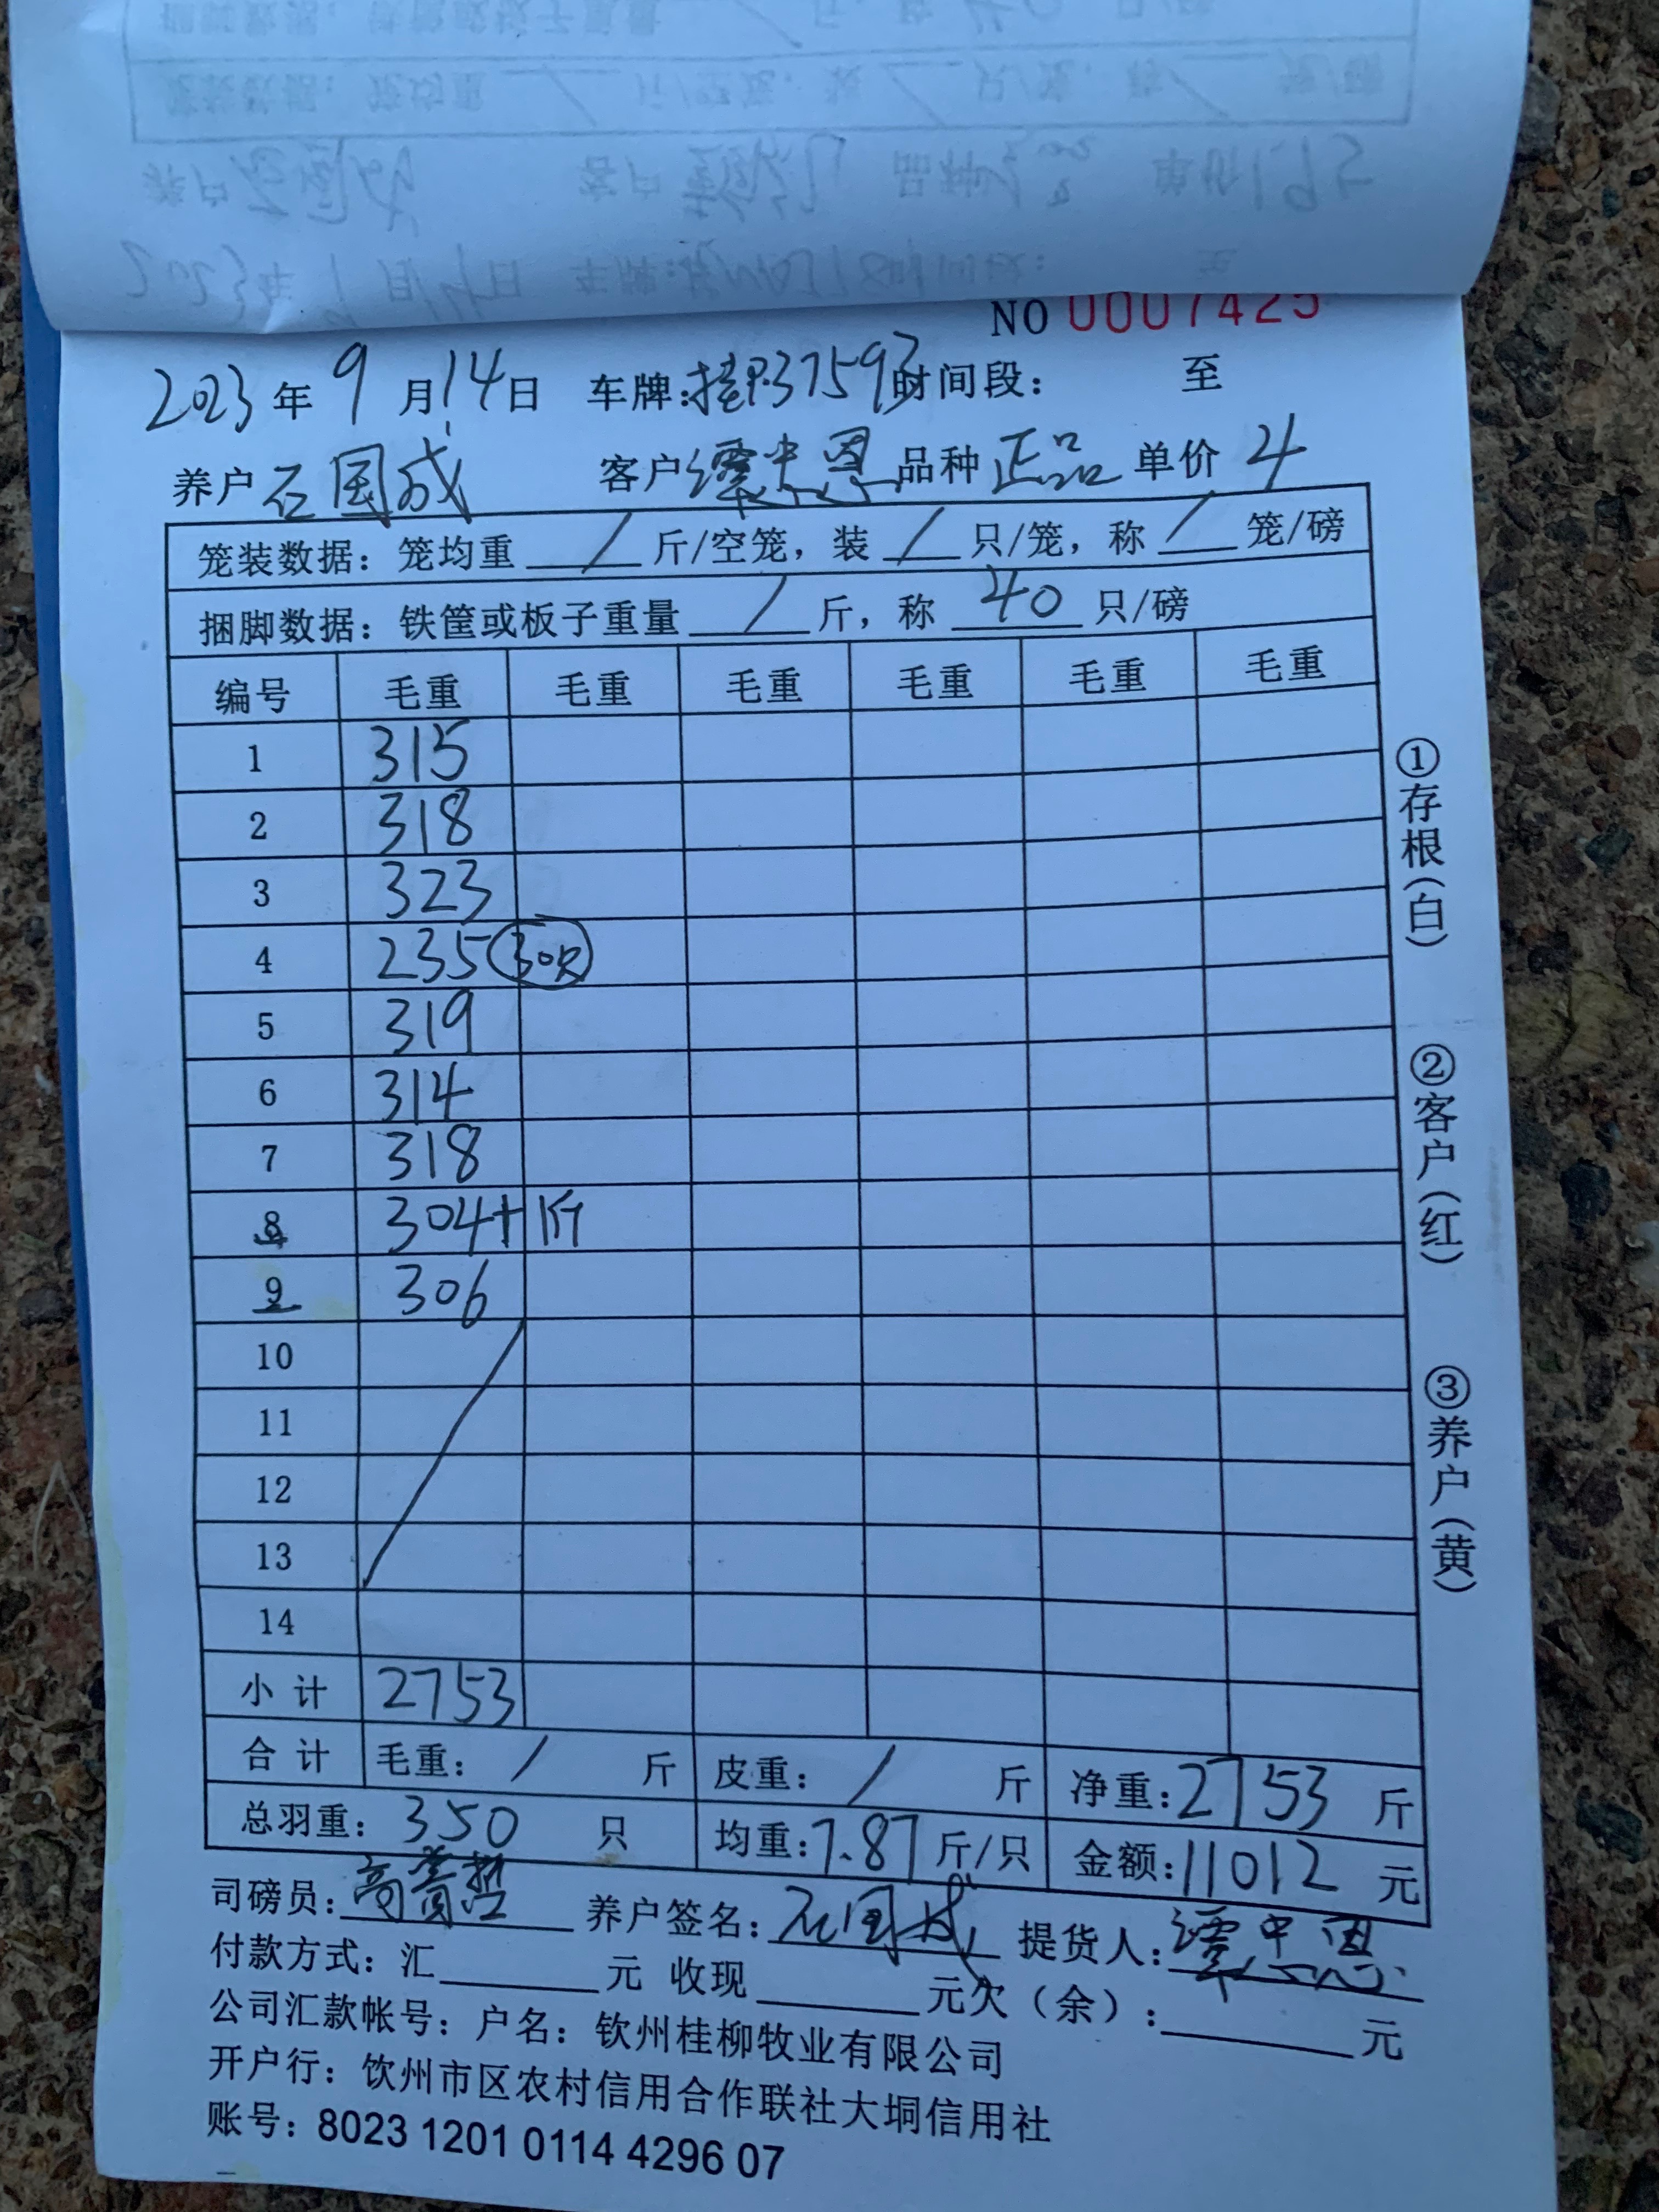 NO 0007425
2023年9月14日 车牌:桂P37593时间段: 至
养户石国成 客户谭忠恩品种正品单价4
笼装数据:笼均重/斤/空笼,装/只/笼,称/笼/磅
捆脚数据:铁筐或板子重量/斤,称40只/磅
编号 毛重 毛重 毛重 毛重 毛重 毛重
1 315
2 318
3 323
4 235 30只
5 319
6 314
7 318
8 304+1斤
9 306
10
11
12
13
14
小计 2753
合计 毛重:/斤 皮重:/斤 净重:2753斤
总羽重:350只 均重:7.87斤/只 金额:11012元
司磅员: 养户签名:石国成 提货人:谭忠恩
付款方式:汇 元 收现 元欠(余): 元
公司汇款帐号:户名:钦州桂柳牧业有限公司
开户行:钦州市区农村信用合作联社大垌信用社
账号:8023 1201 0114 4296 07
①存根(白)
②客户(红)
③养户(黄)